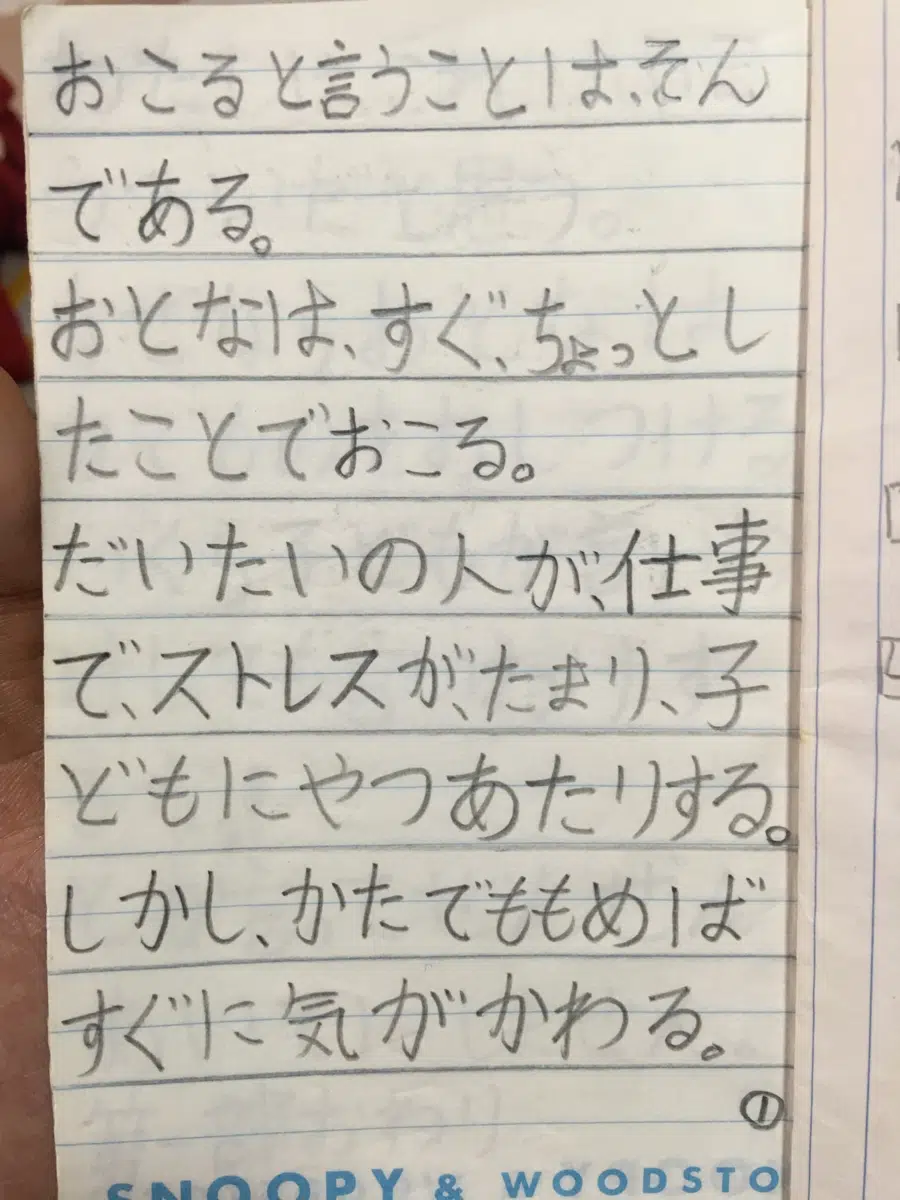 おこると言うことは、そん
である。
おとなは、すぐ、ちょっとし
たことでおこる。
だいたいの人が、仕事
で、ストレスが、たまり、子
どもにやつあたりする。
しかし、かたでももめば
すぐに気がかわる。
①
SNOOPY & WOODSTO